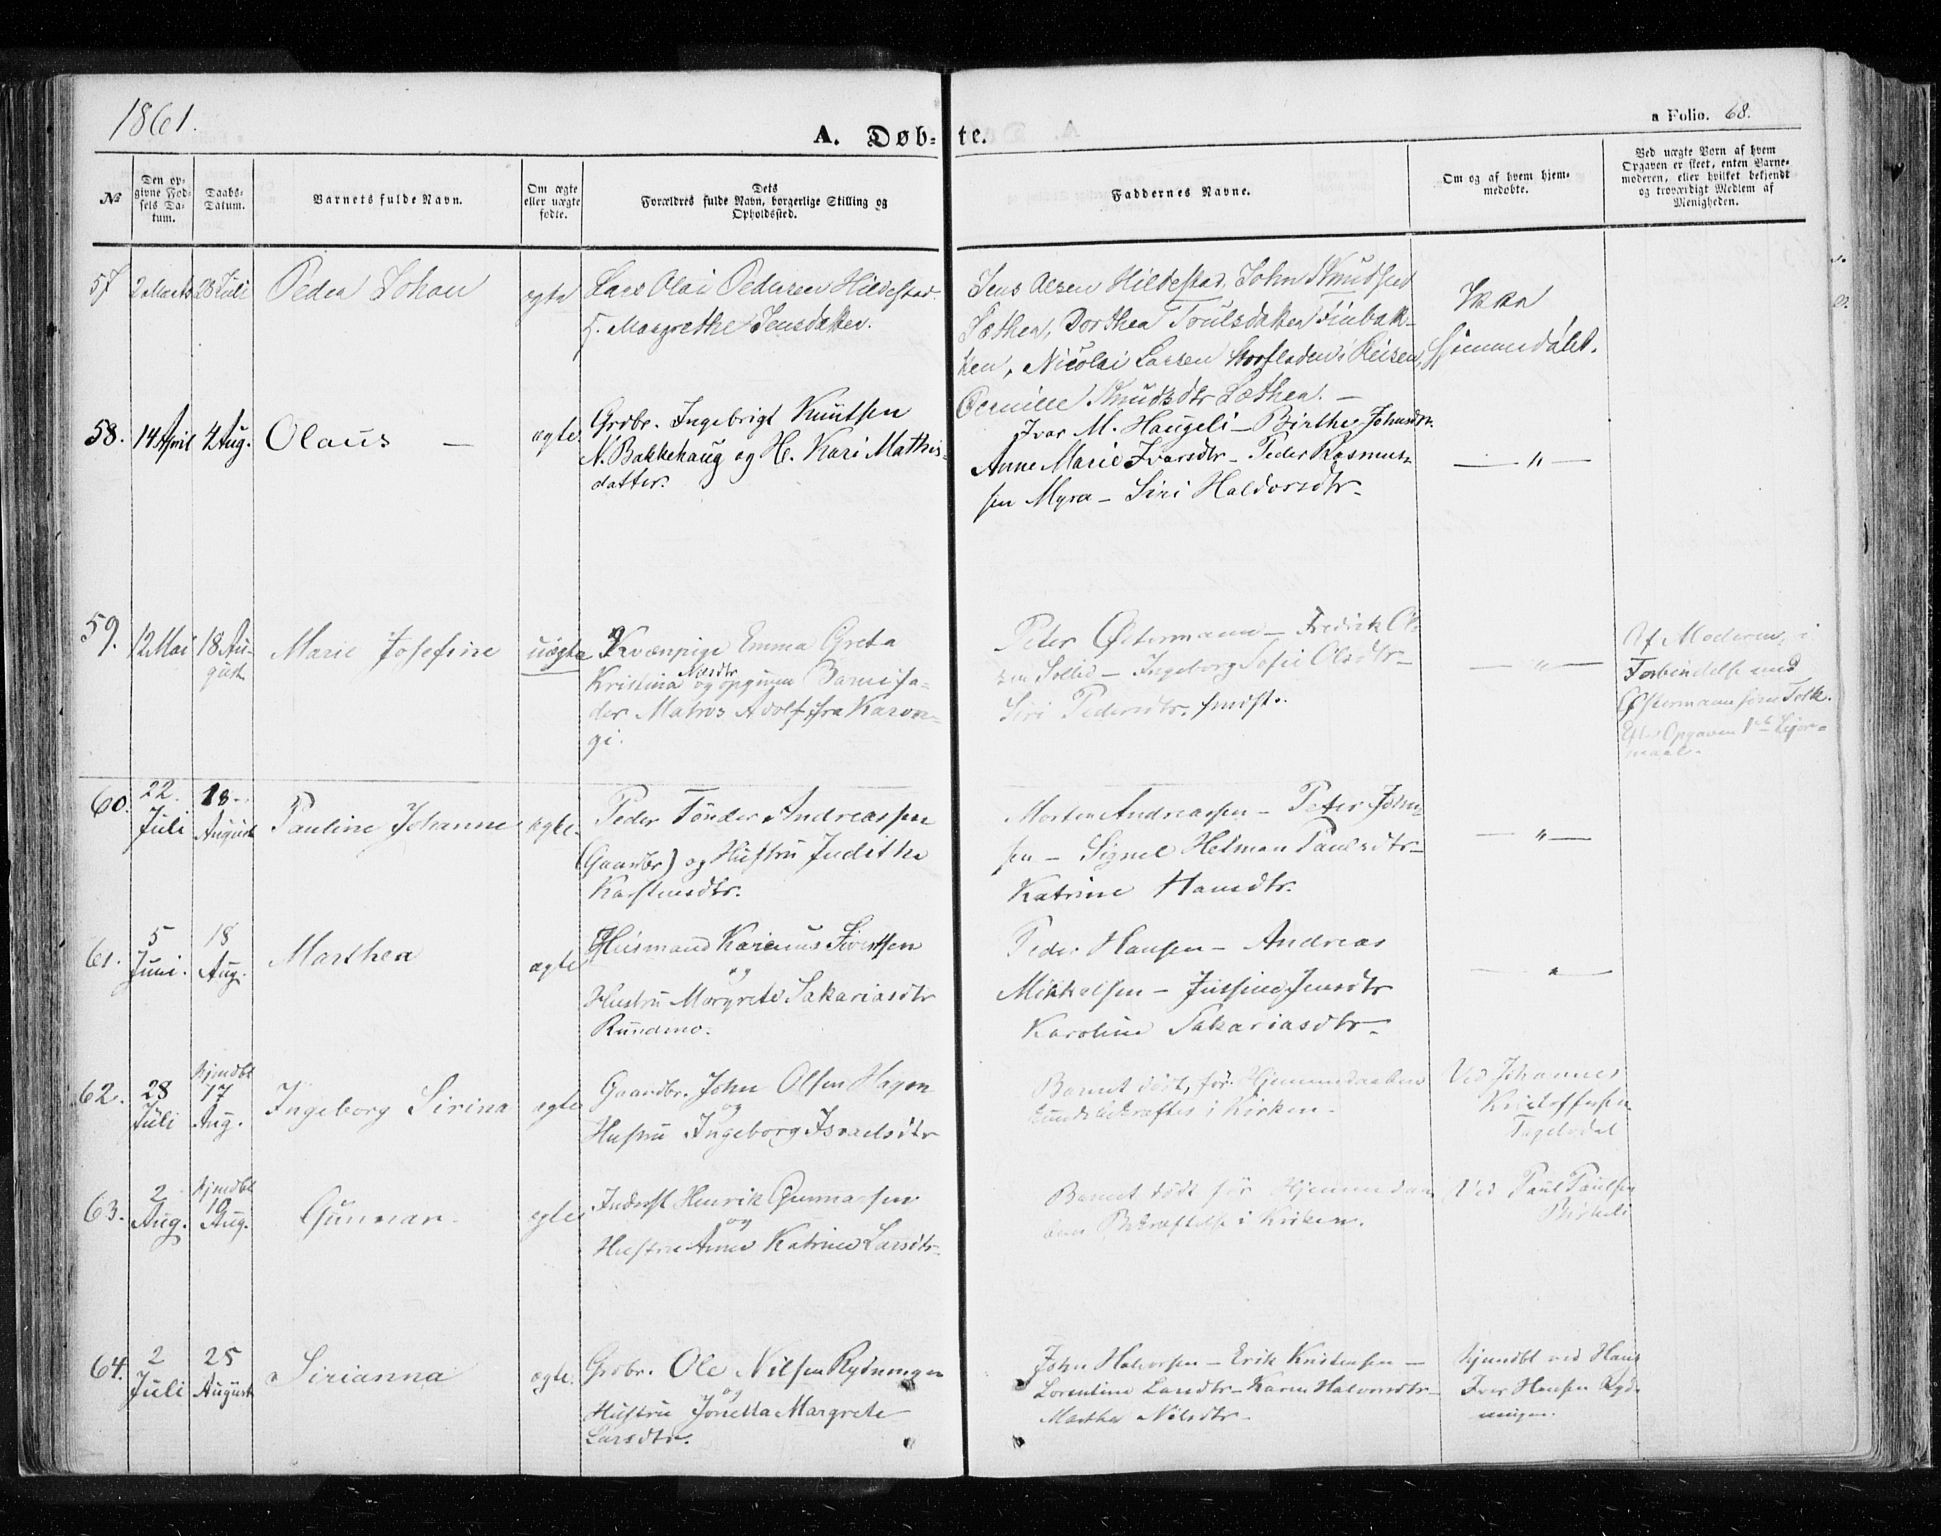 1861.
A. Døb-te.
a Folio. 68.
№
Den op-
givne Fød-
sels Da-
tum.
Daabs-
Datum.
Barnets fulde Navn.
Om ægte
eller uægte
fødte.
Dets
Forældres fulde Navn, borgerlige Stilling og
Opholdssted.
Faddernes Navne.
Om og af hvem hjem-
medøbte.
Ved uægte Børn af hvem
Opgaven er skeet, enten Barne-
moderen, eller hvilket bekjendt
og troværdigt Medlem af
Menigheden.
57 2 Marts 28 Juli Peder Johan ægte
Lars Olai Pedersen Hildestad
Margrethe Jensdatter.
Jens Olsen Hildestad, John Knudsen
Sæther, Dorthea Troulsdatter Finbak-
ken, Nicolai Larsen Reisen
Pernille Knudsdtr Sæther. —
Ikke
hjemmedøbt.
58. 14 April 4 Aug. Olaus — ægte
Grdbr. Ingebrigt Knutsen
N. Bakkehaug og H. Kari Mathis-
datter.
Ivar M. Haugeli — Birthe Johnsdtr.
Anne Marie Ivarsdtr — Peder Rasmus-
sen Myra — Siri Haldorsdtr —
— " —
59. 12 Mai 18 Au-
gust Marie Josefine uægte
Kvænpige Emma Greta
Kristina Nilsdtr og opgiven Barnefa-
der Matros Adolf fra Karon-
gi.
Peter Østermann — Fredrik Ol-
sen Solli — Ingeborg Sofie Olsdtr —
Siri Pedersdtr.
— " —
Af Moderen, i
Forbindelse med
Østermann som Tolk.
Efter Opgaven 1ste Leier-
maal.
60. 22.
Juli 18
August Pauline Johanne ægte.
Peder Tønder Andreassen
(Gaardbr) og Hustru Judithe
Karstensdtr.
Morten Andreassen — Peter John-
sen — Signel Helman Paulsdtr —
Katrine Hansdtr.
— " —
61. 5
Juni. 18
Aug. Marthea ægte
Huusmand Karinus Sivertsen
og
Hustru Margrete Sakariasdtr
Rundmo.
Peder Hansen — Andreas
Mikkelsen — Jutsine Jensdtr
Karoline Sakariasdtr —
— " —
62. 28
Juli hjemdbt
17
Aug. Ingeborg Sirina ægte
Gaardbr. John Olsen Hagen
og
Hustru Ingeborg Israelsdtr
Barnet dødt, før Hjemmedaaben
kunde bekræftes i Kirken.
Ved Johannes
Kristoffersen
Fagerdal
63. 2
Aug. hjmdbt
10
Aug. Gunnar. ægte
Inderst Henrik Gunnarsen
og
Hustru Anne Katrine Larsdtr.
Barnet dødt før Hjemmedaa-
bens Bekræftelse i Kirken.
Ved Paul Paulsen
Birkeli
64. 2
Juli 25
August Sirianna ægte.
Grdbr. Ole Nilsen Rydningen
og
Hustru Jonetta Margrete
Larsdtr.
John Halvorsen — Erik Kristensen —
Lorentine Larsdtr — Karen Halvorsdtr —
Marthe Nilsdtr —
hjemdbt ved Hans
Iver Hansen Ryd-
ningen.